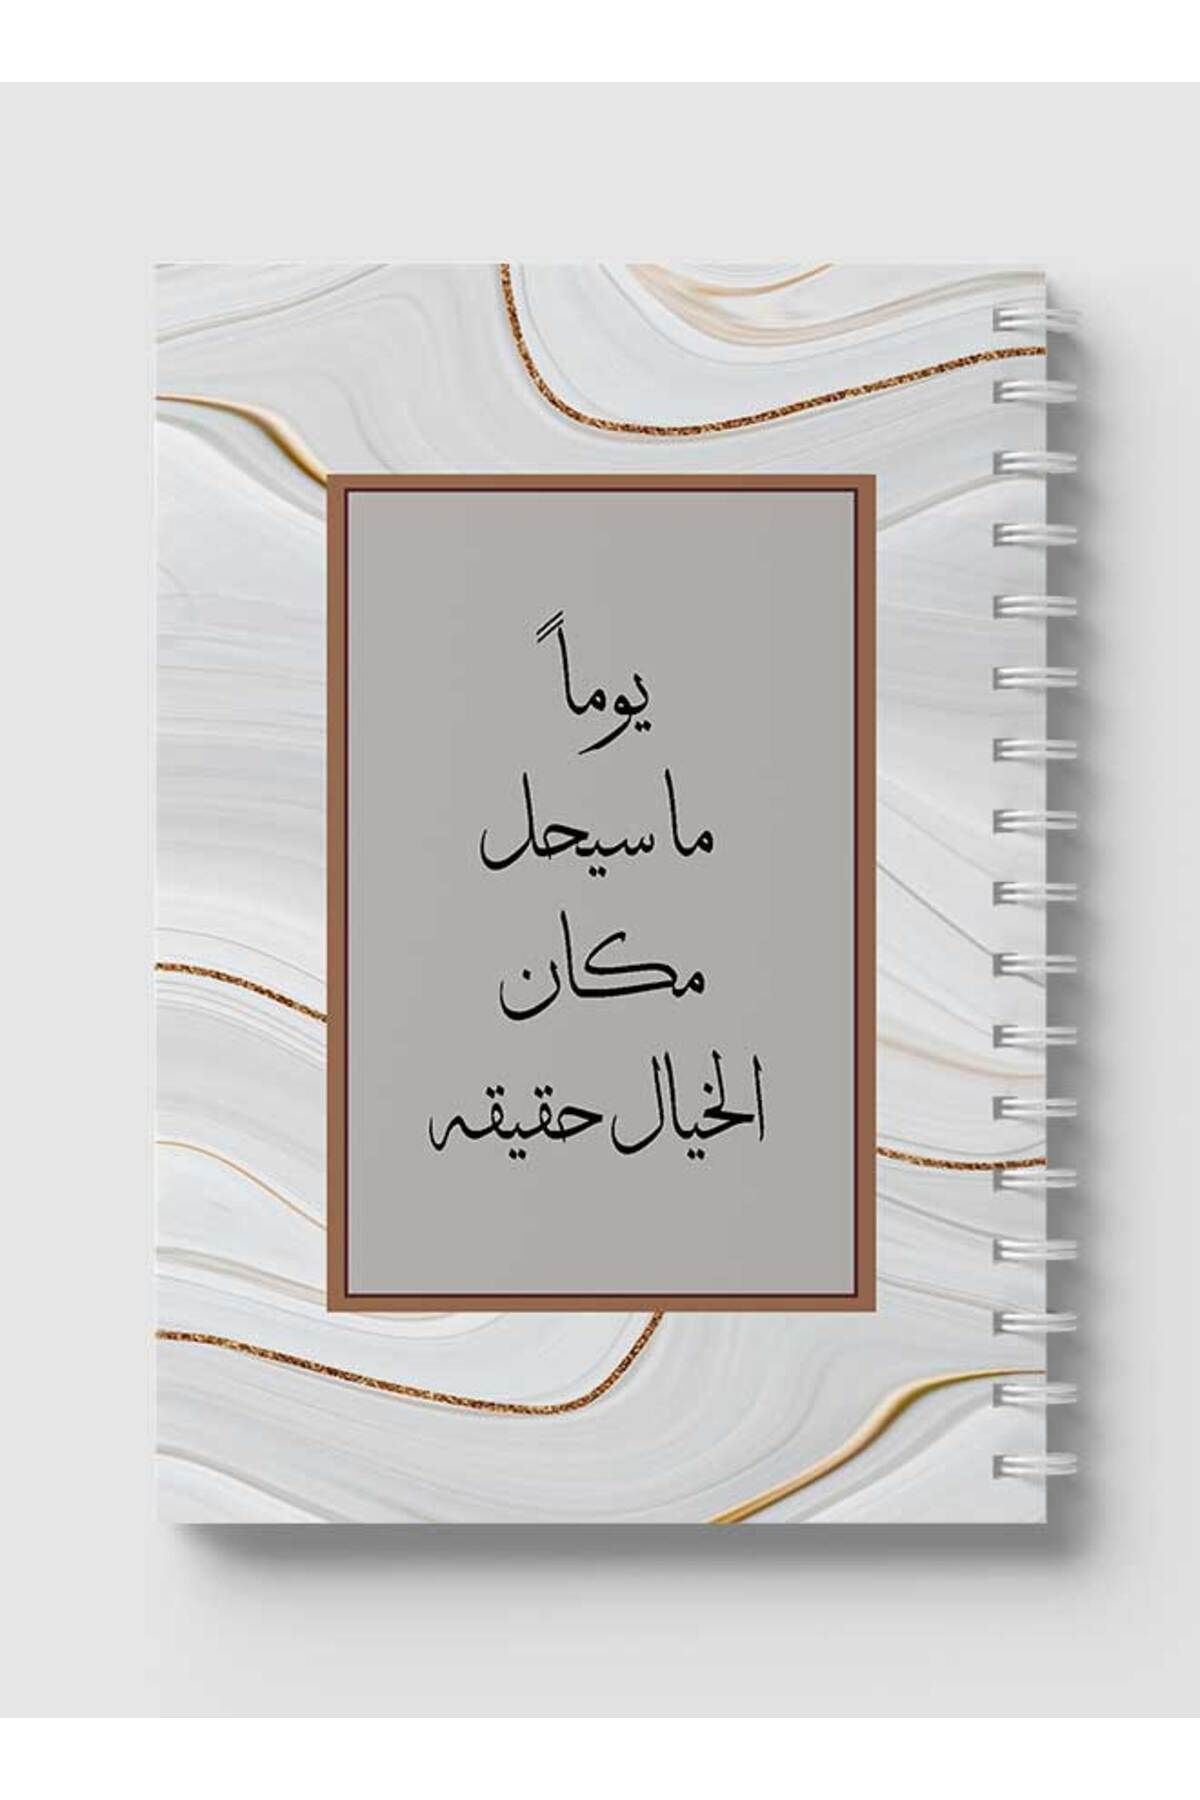 يوماً
ما سيحل
مكان
الخيال حقيقه